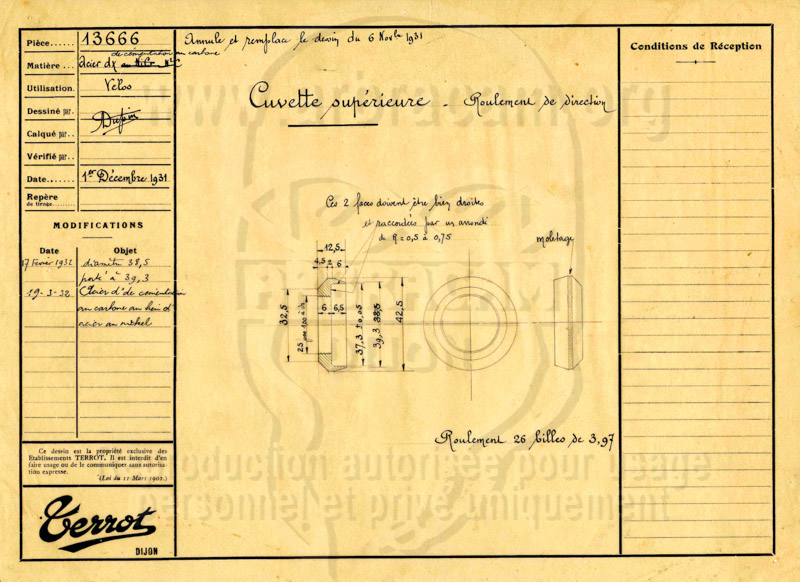 Pièce...... 13666
Annule et remplace le dessin du 6 Novbre 1931
de cémentation au carbone
Matière.. Acier dx au Nikel
Utilisation. Vélos
Dessiné par.
Calqué par..
Vérifié par..
Date....... 1er Décembre 1931
Repère
de tirage
MODIFICATIONS
Date Objet
17 Fevrier 1932 diametre 38,5
porté à 39,3
19-3-32 Acier d' de cementation
au carbone au lieu d
acier au nickel
Ce dessin est la propriété exclusive des
Etablissements TERROT. Il est interdit d'en
faire usage ou de le communiquer sans autorisa-
tion expresse.
(Loi du 11 Mars 1902.)
Terrot
DIJON
Cuvette supérieure - Roulement de direction
Ces 2 faces doivent être bien droites
et raccordées par un arrondi
de R = 0,5 à 0,75
moletage
12,5
4,5 6
6 6,5
32,5
25
37,3 ± 0,05
39,3 38,5
42,5
Roulement 26 billes de 3,97
Conditions de Réception
www.amicaracam.org
DIJON
Reproduction autorisée pour usage
personnel et privé uniquement